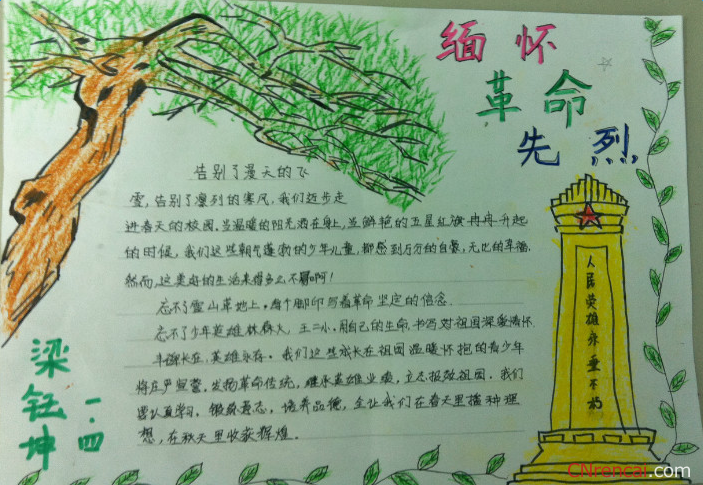 缅怀
革命
先烈
告别了漫天的飞
雪,告别了凛列的寒风,我们迈步走
进春天的校园。当温暖的阳光洒在身上,当鲜艳的五星红旗冉冉升起
的时候,我们这些朝气蓬勃的少年儿童,都感到万分的自豪,无比的幸福。
然而,这美好的生活来得多么不易啊!
忘不了雪山草地上,每个脚印写着革命坚定的信念。
忘不了少年英雄林森火、王二小,用自己的生命,书写对祖国深爱情怀
长在,英雄永存。我们这些成长在祖国温暖怀抱的青少年
将庄严宣誓,发扬革命传统,继承英雄业绩,立志报效祖国。我们
要认真学习,锻炼意志,培养品德,让我们在春天里播种理
想,在秋天里收获辉煌。
梁钰坤
一.四
人民英雄永垂不朽
CNrencai.com